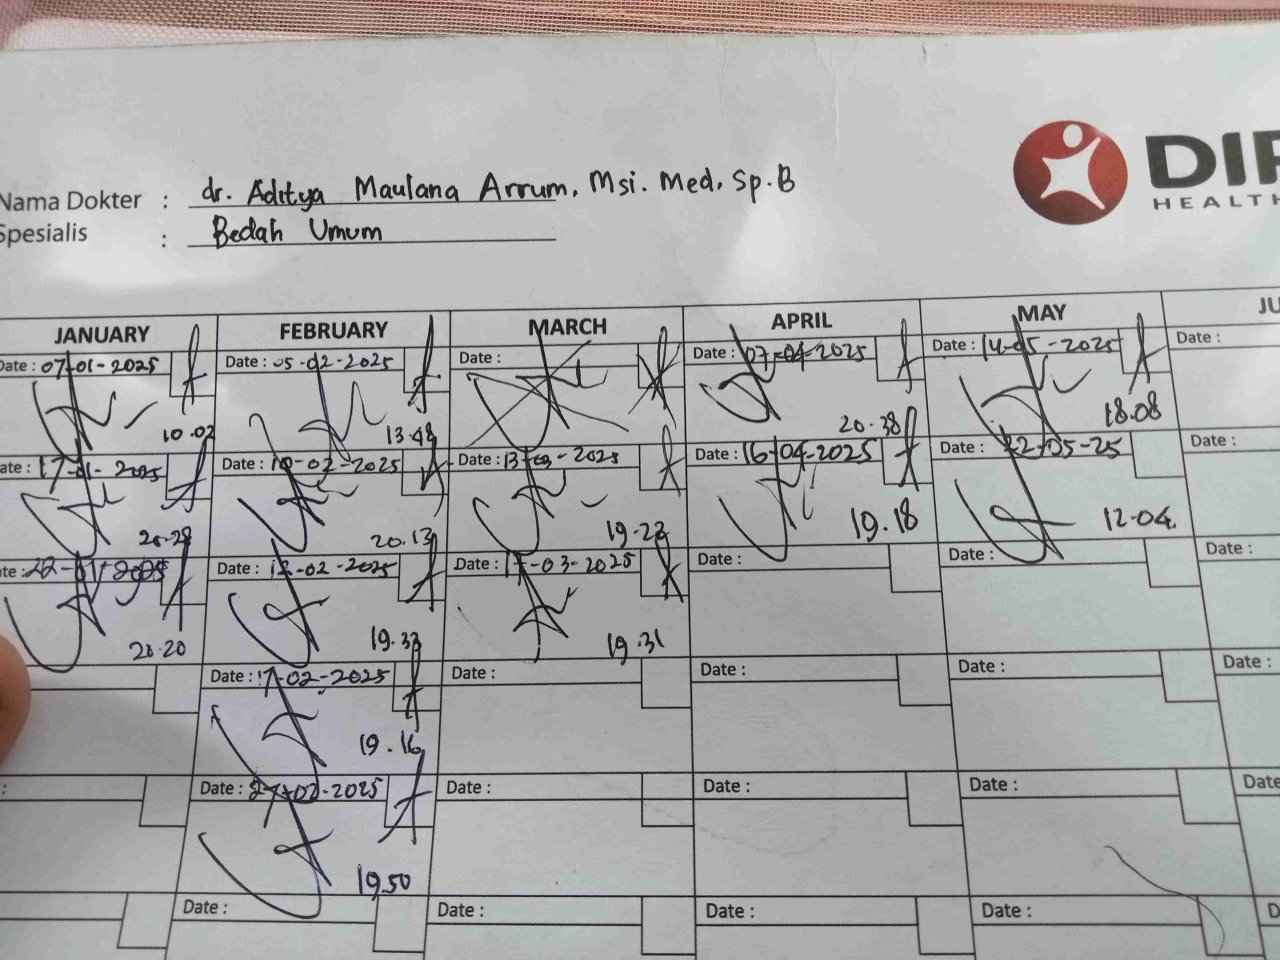 Nama Dokter : dr. Aditya Maulana Arrum, Msi. Med, Sp.B
Spesialis : Bedah Umum
DIP
HEALTH
JANUARY FEBRUARY MARCH APRIL MAY JU
Date : 07-01-2025 Date : 05-02-2025 Date : Date : 07-04-2025 Date : 14-05-2025 Date :
10.02 13.48 20.38 18.08
ate : 17-01-2025 Date : 10-02-2025 Date : 13-03-2025 Date : 16-04-2025 Date : 22-05-25 Date :
20.28 20.13 19.23 19.18 12.04
te : 22-01-2025 Date : 12-02-2025 Date : 17-03-2025 Date : Date : Date :
20.20 19.33 19.31
Date : 17-02-2025 Date : Date : Date : Date :
19.16
: Date : 27-02-2025 Date : Date : Date : Date
19.50
Date : Date : Date : Date : D